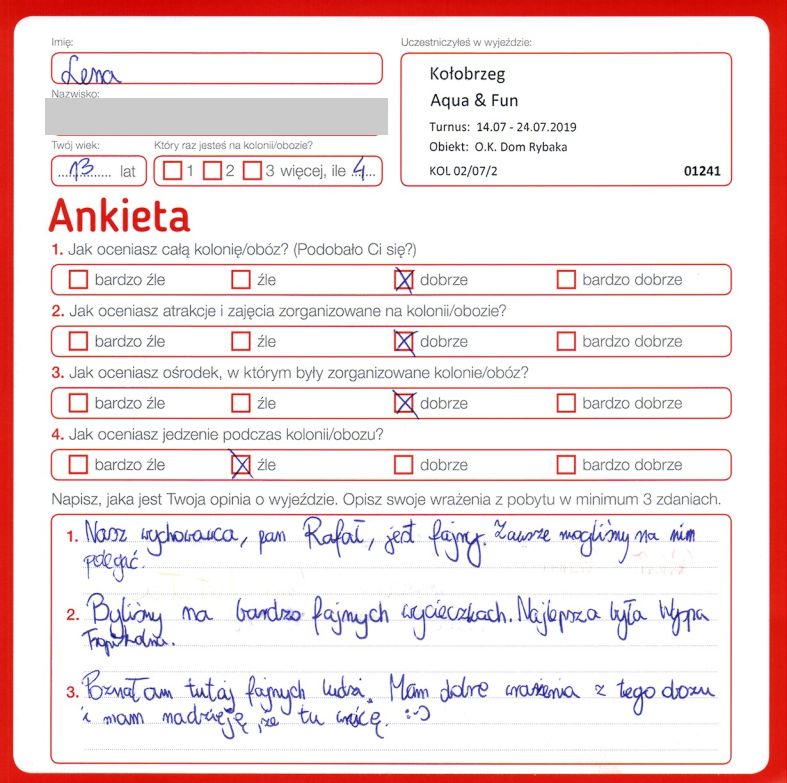 Imię:
Lena
Uczestniczyłeś w wyjeździe:
Kołobrzeg
Aqua & Fun
Turnus: 14.07 - 24.07.2019
Obiekt: O.K. Dom Rybaka
KOL 02/07/2 01241
Nazwisko:
Twój wiek:
13 lat
Który raz jesteś na kolonii/obozie?
1 2 3 więcej, ile 4
Ankieta
1. Jak oceniasz całą kolonię/obóz? (Podobało Ci się?)
bardzo źle źle dobrze bardzo dobrze
2. Jak oceniasz atrakcje i zajęcia zorganizowane na kolonii/obozie?
bardzo źle źle dobrze bardzo dobrze
3. Jak oceniasz ośrodek, w którym były zorganizowane kolonie/obóz?
bardzo źle źle dobrze bardzo dobrze
4. Jak oceniasz jedzenie podczas kolonii/obozu?
bardzo źle źle dobrze bardzo dobrze
Napisz, jaka jest Twoja opinia o wyjeździe. Opisz swoje wrażenia z pobytu w minimum 3 zdaniach.
1. Nasz wychowawca, pan Rafał, jest fajny. Zawsze mogliśmy na nim
polegać.
2. Byliśmy na bardzo fajnych wycieczkach. Najlepsza była Wyspa
Tropikalna.
3. Poznałam tutaj fajnych ludzi. Mam dobre wrażenia z tego obozu
i mam nadzieję, że tu wrócę. :-)